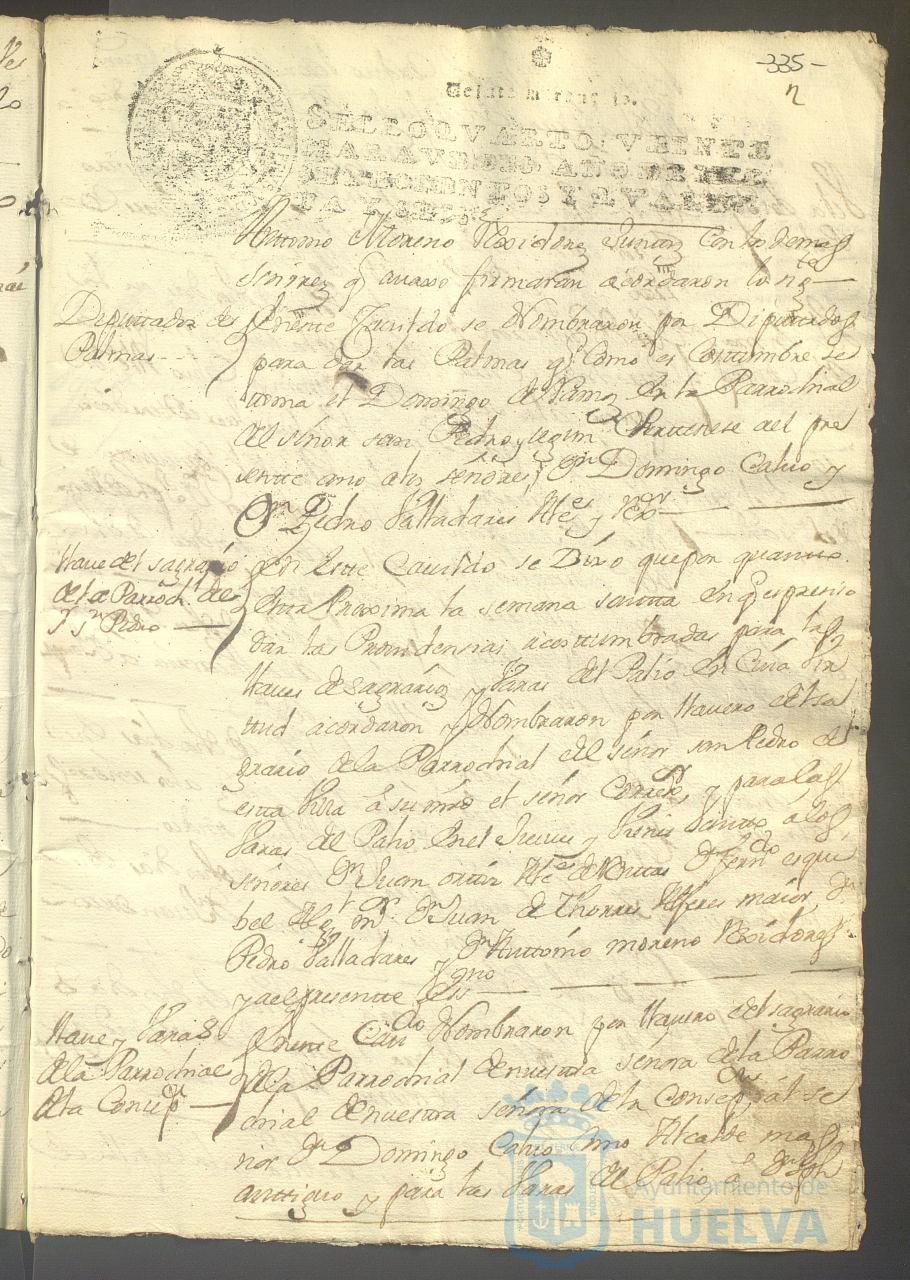 -335-
n
Veinte marauedis.
SELLO QVARTO, VEINTE
MARAVEDIS, AÑO DE MIL
SETECIENTOS Y QVAREN
TA Y SEIS.
Anttonio Moreno Rexidores Juntos Con los demas
señores q avaxo firmaran acordaron lo sigte
Deputtados de
Palmas
En este Cavildo se Nombraron por Diputtados
para dar las Palmas q Como es Costtumbre se
toma el Domingo de Ramos en la Parrochial
del señor san Pedro
sentte ano a los señores Dn Domingo Calvo y
Dn Pedro Valladares Alces y Rexor
llave del sagrario
de la Parroch de
Sr Sn Pedro
En Este Cavildo se Dixo que por quantto
Esta Proxima la semana santta en q es presiso
dar las Providensias acosttumbradas para las
llaves de sagrarios y Varas del Palio en Cuia vir
ttud acordaron y Nombraron por llavero del sa
grario de la Parrochial del señor san Pedro de
esta Villa a su mrd el señor Correxor y para las
Varas del Palio en el Jueves y Viernes santto á los
señores Dn Juan ortiz Alce de Dn Ferndo esqui
bel Alg mr Dn Juan de Thorres Alferes maior, Dn
Pedro Valladares y Dn Anttonio moreno Rexidores
y a el presentte Essno
llave y Varas
de la Parrochial
de la Concepn
En este Cavdo Nombraron por llavero del sagrario
de la Parrochial de nuestra señora de la Parro
chial de nuestra señora de la Consepn al se
ñor Dn Domingo Calvo Alcalde mas
anttiguo y para las Varas de Palio a Dn Joph
Ayuntamiento de
HUELVA